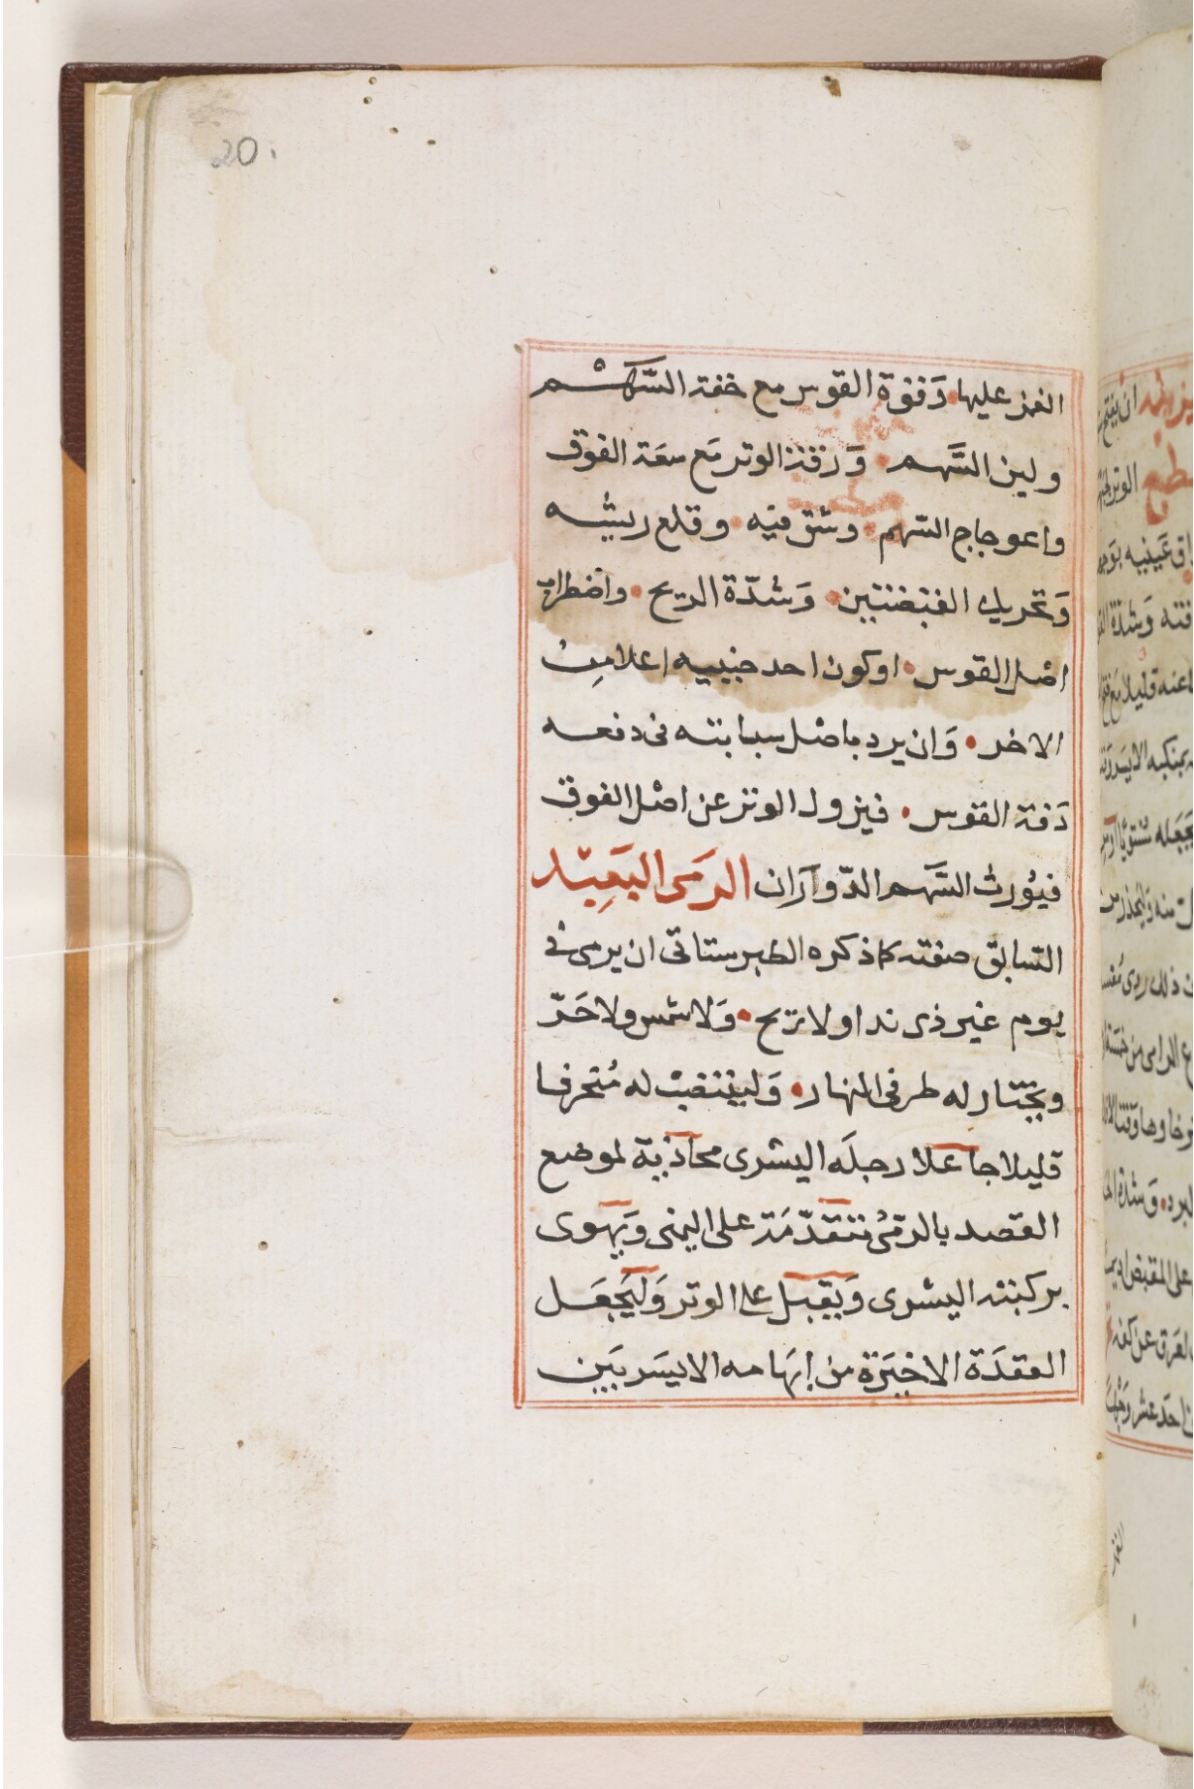 20
الغمز عليها وَقوة القوس مع خفة السَّهْم
ولين السَّهم وَرقة الوتر مَع سعَة الفوق
واعوجاج السّهم وشق فيه وقلع ريشه
وَتحريك القبضتين وَشدّة الريح واضطراب
اصْل القوس او كون احد جنبيه اعلا مِنْ
الاخر وَان يرد باصْل سبابته فى دفعه
دَفة القوس فيزول الوتر عن اصْل الفوق
فيُورث السَّهم الدّوَران الرَمى البَعِيْد
السّابق صفته كما ذكره الطبرستانى ان يرمى فى
يوم غير ذى ندا ولا ريح وَلا شمس ولا حَرّ
ويختار له طرفى النهار وَلينتصبْ له مُنحرفا
قليلا جاعلا رجلَه اليسرى محاذية لموضع
القصد بالرّمْى متقدّمَة على اليمنى وَيهوى
بركبته اليسرى وَيقبل على الوتر وَليَجعَل
العقدَة الاخيَرة من اِبهَامه الايسَر بَين